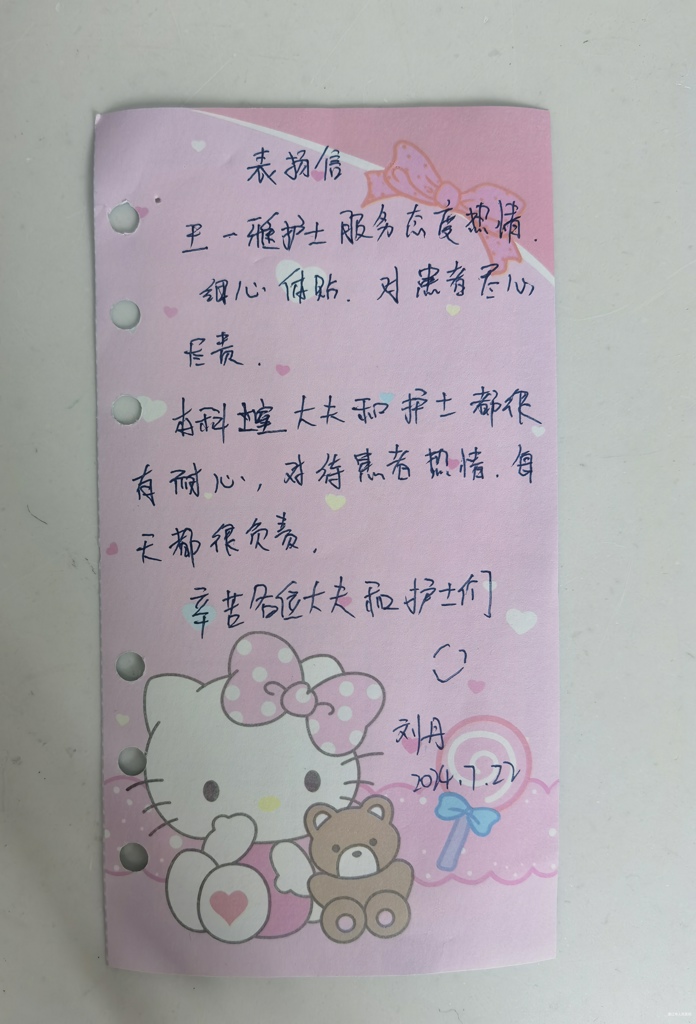 表扬信
王一雅护士服务态度热情.
细心体贴. 对患者尽心
尽责.
本科室大夫和护士都很
有耐心, 对待患者热情. 每
天都很负责.
辛苦各位大夫和护士们
刘丹
2024.7.22